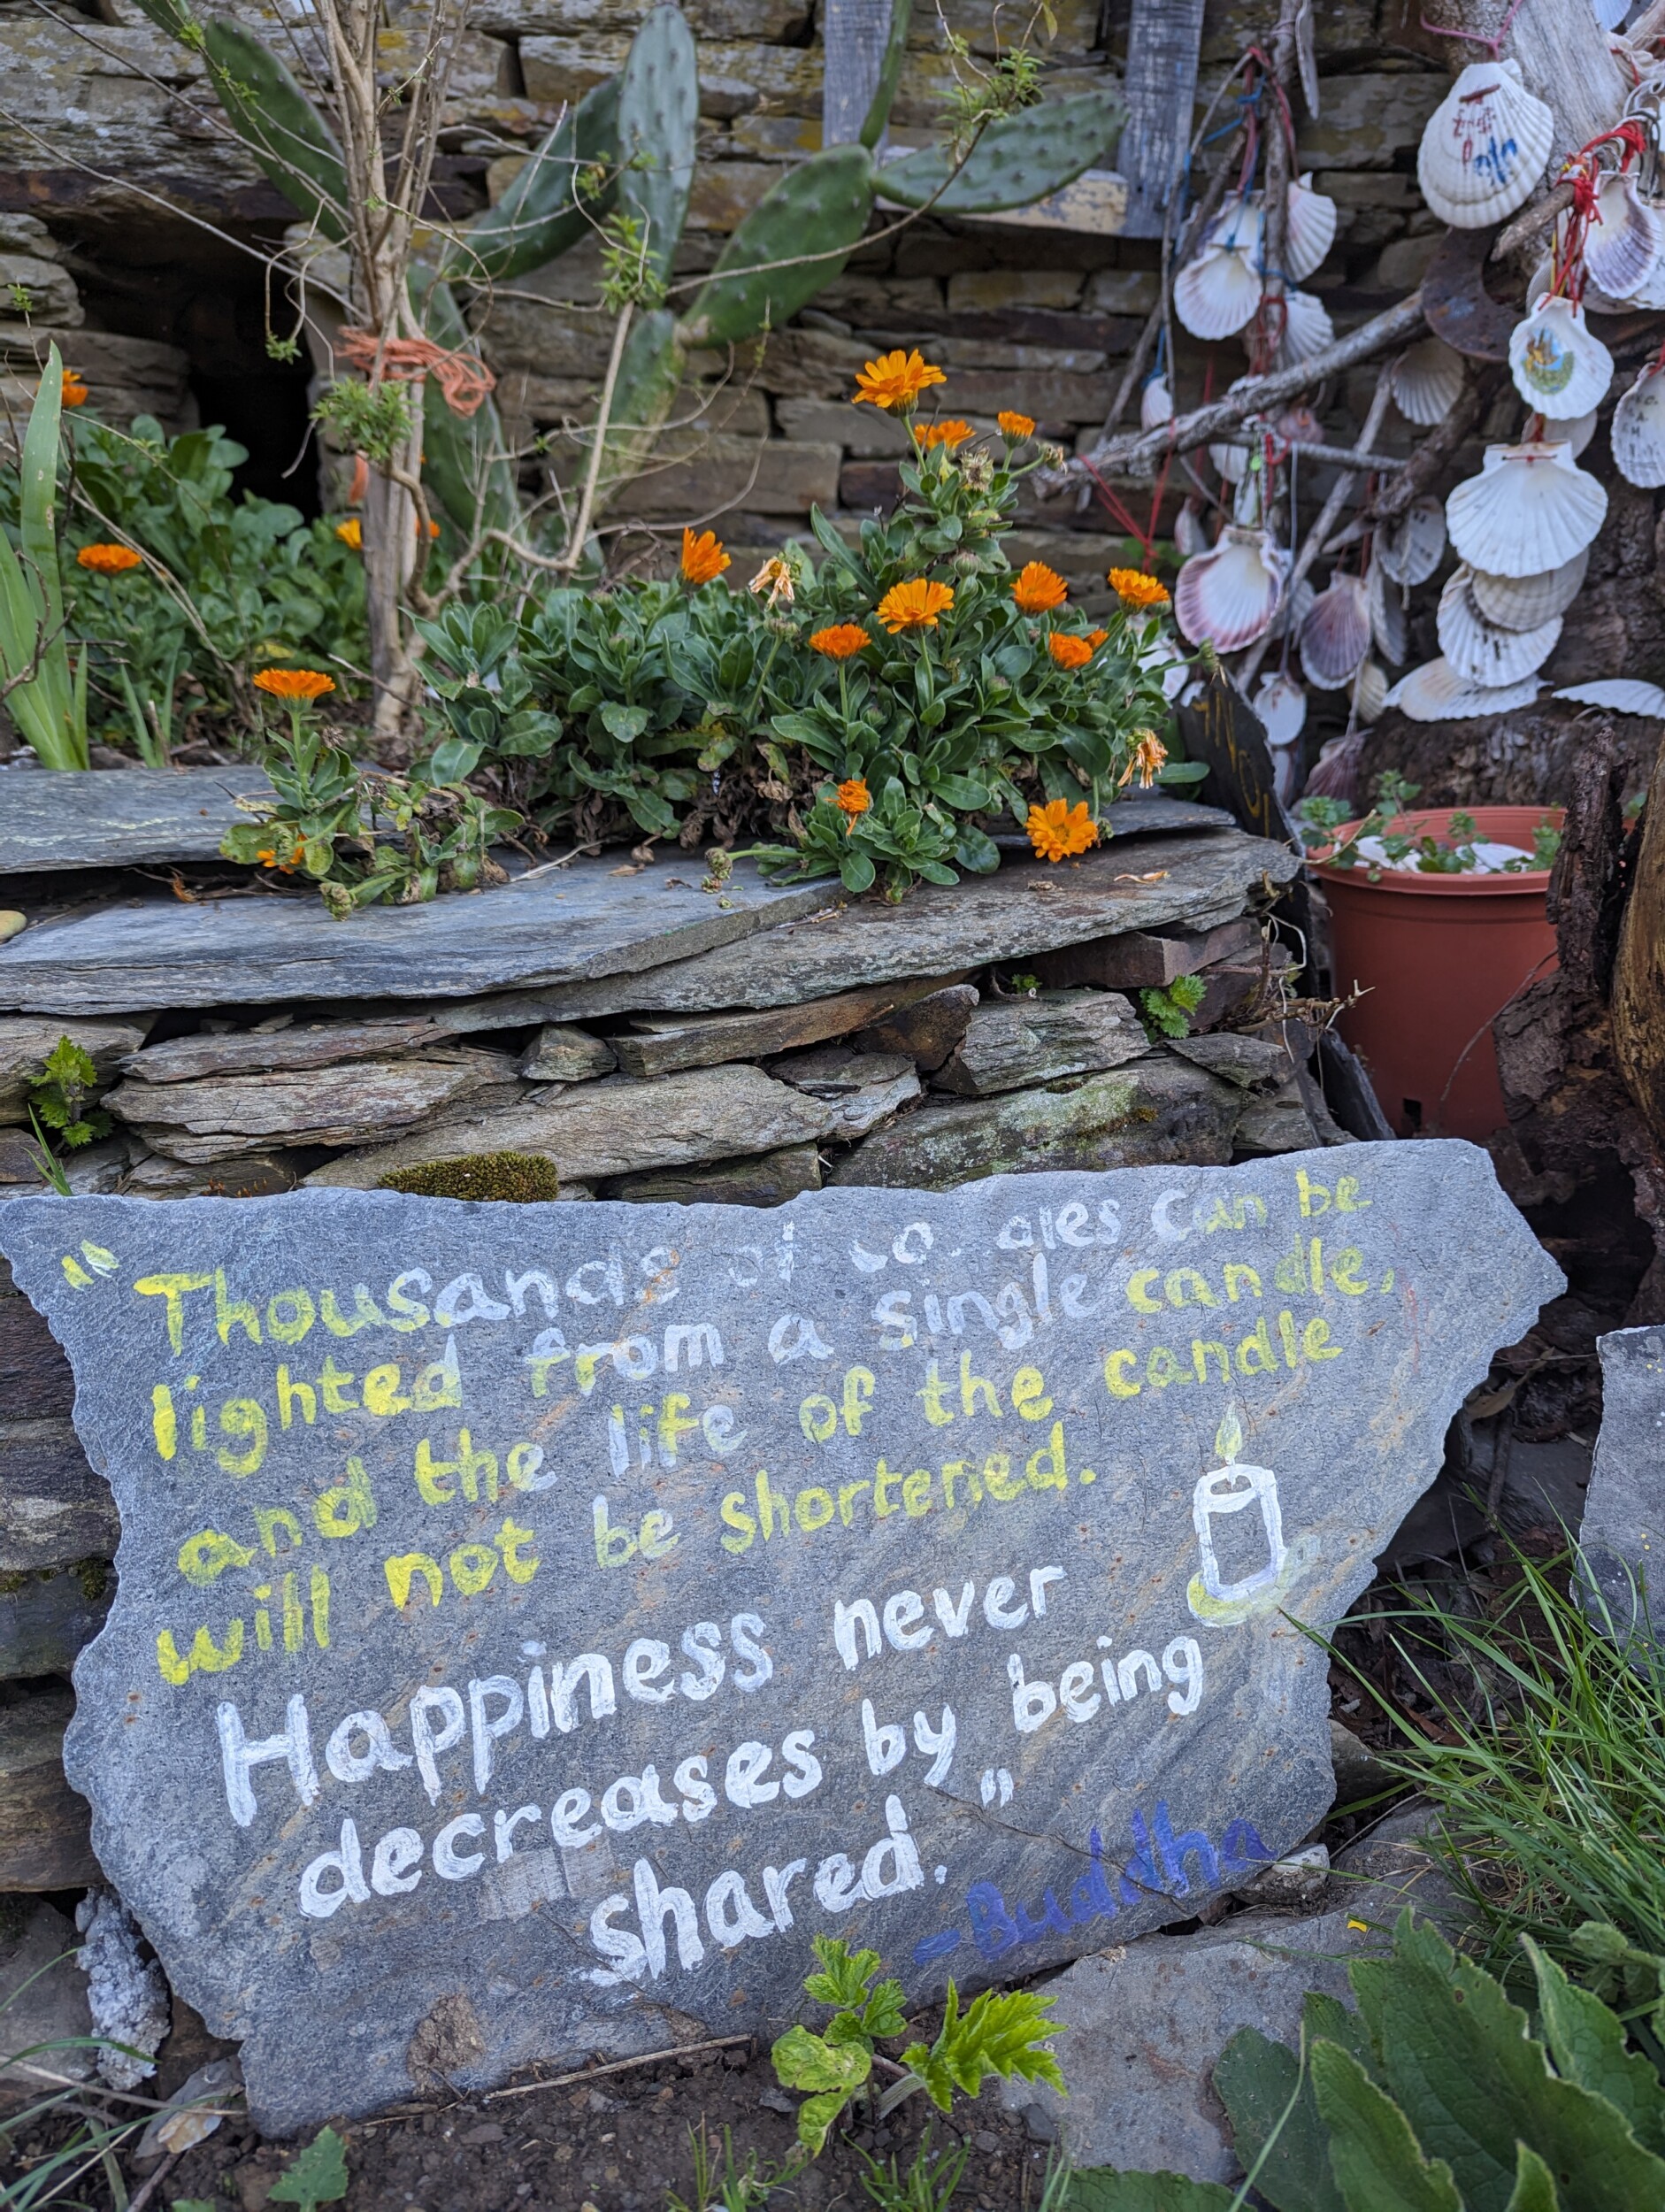 "Thousands of candles can be
lighted from a single candle,
and the life of the candle
will not be shortened.
Happiness never
decreases by being
shared."
-Buddha